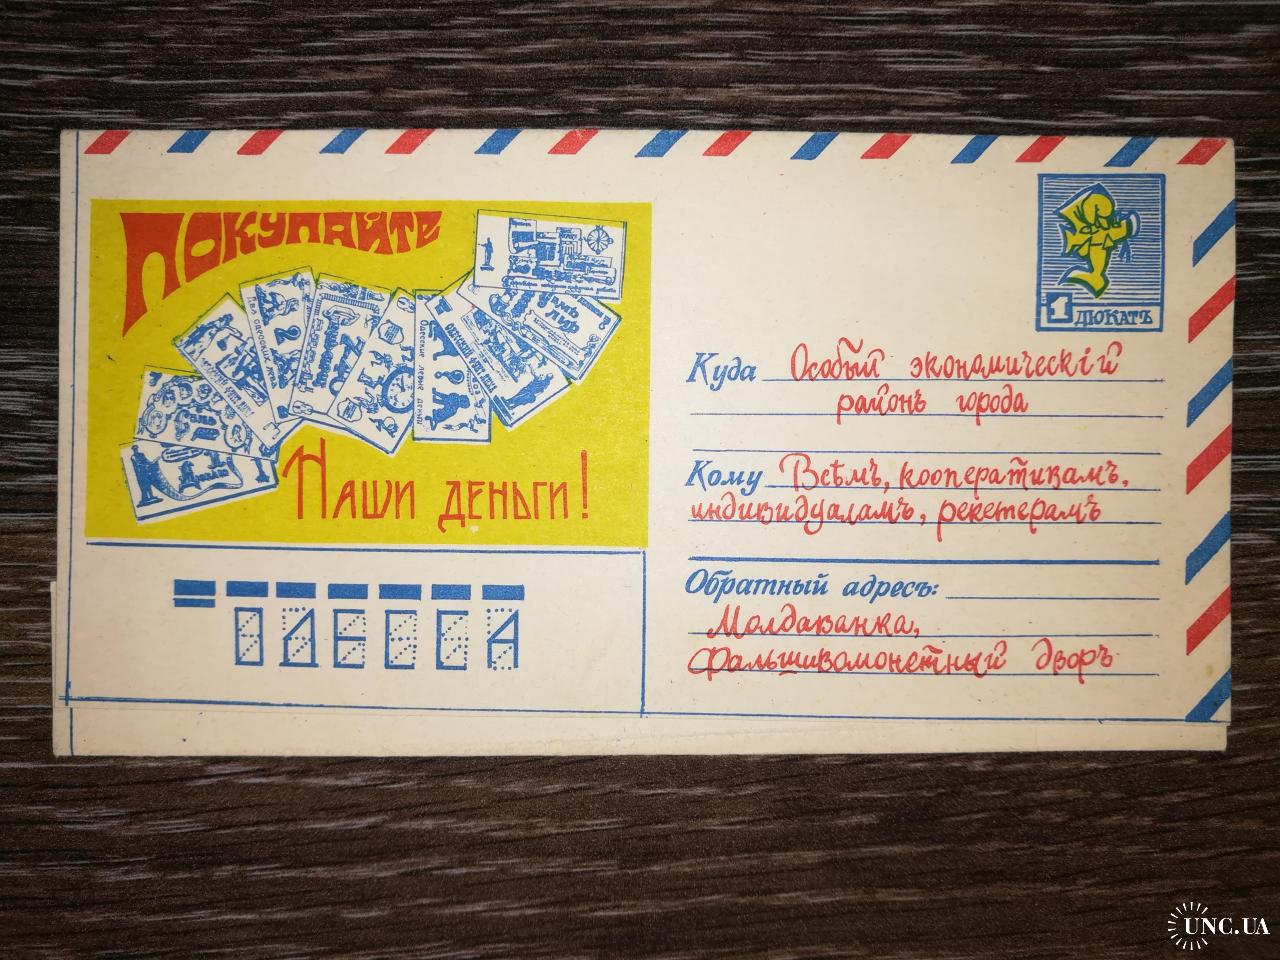 Покупайте
Наши деньги!
ОДЕССА
1 ДЮКАТЪ
Куда Особый экономическiй
районъ города
Кому Всѣмъ, кооперативамъ,
индивидуаламъ, рекетерамъ
Обратный адресъ:
Молдаванка,
Фальшивомонетный дворъ
UNC.UA